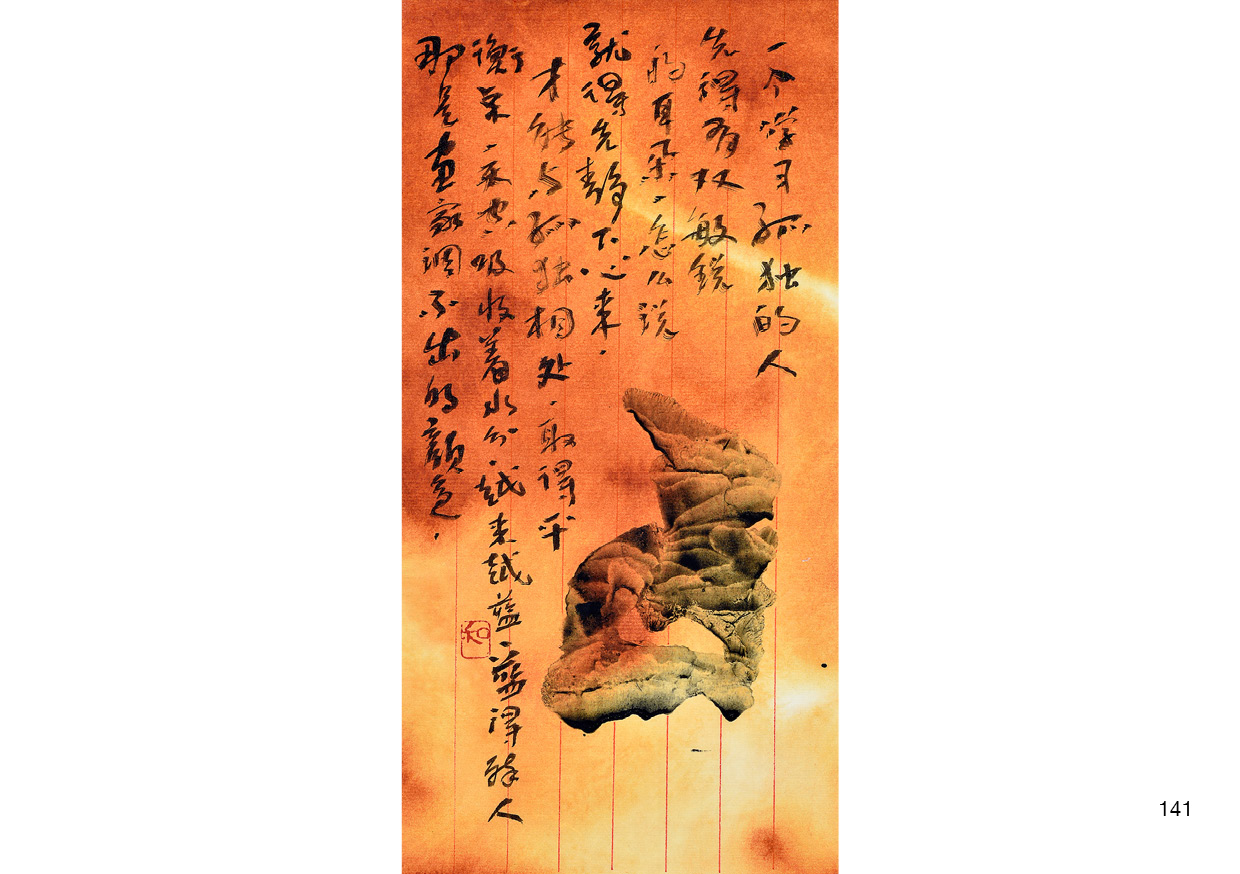 一个学习孤独的人
先得有双敏锐
的耳朵，怎么说
就得先静下心来，
才能与孤独相处，取得平
衡气，天空吸收着水分，越来越蓝，蓝得醉人
那是画家调不出的颜色，
知
141